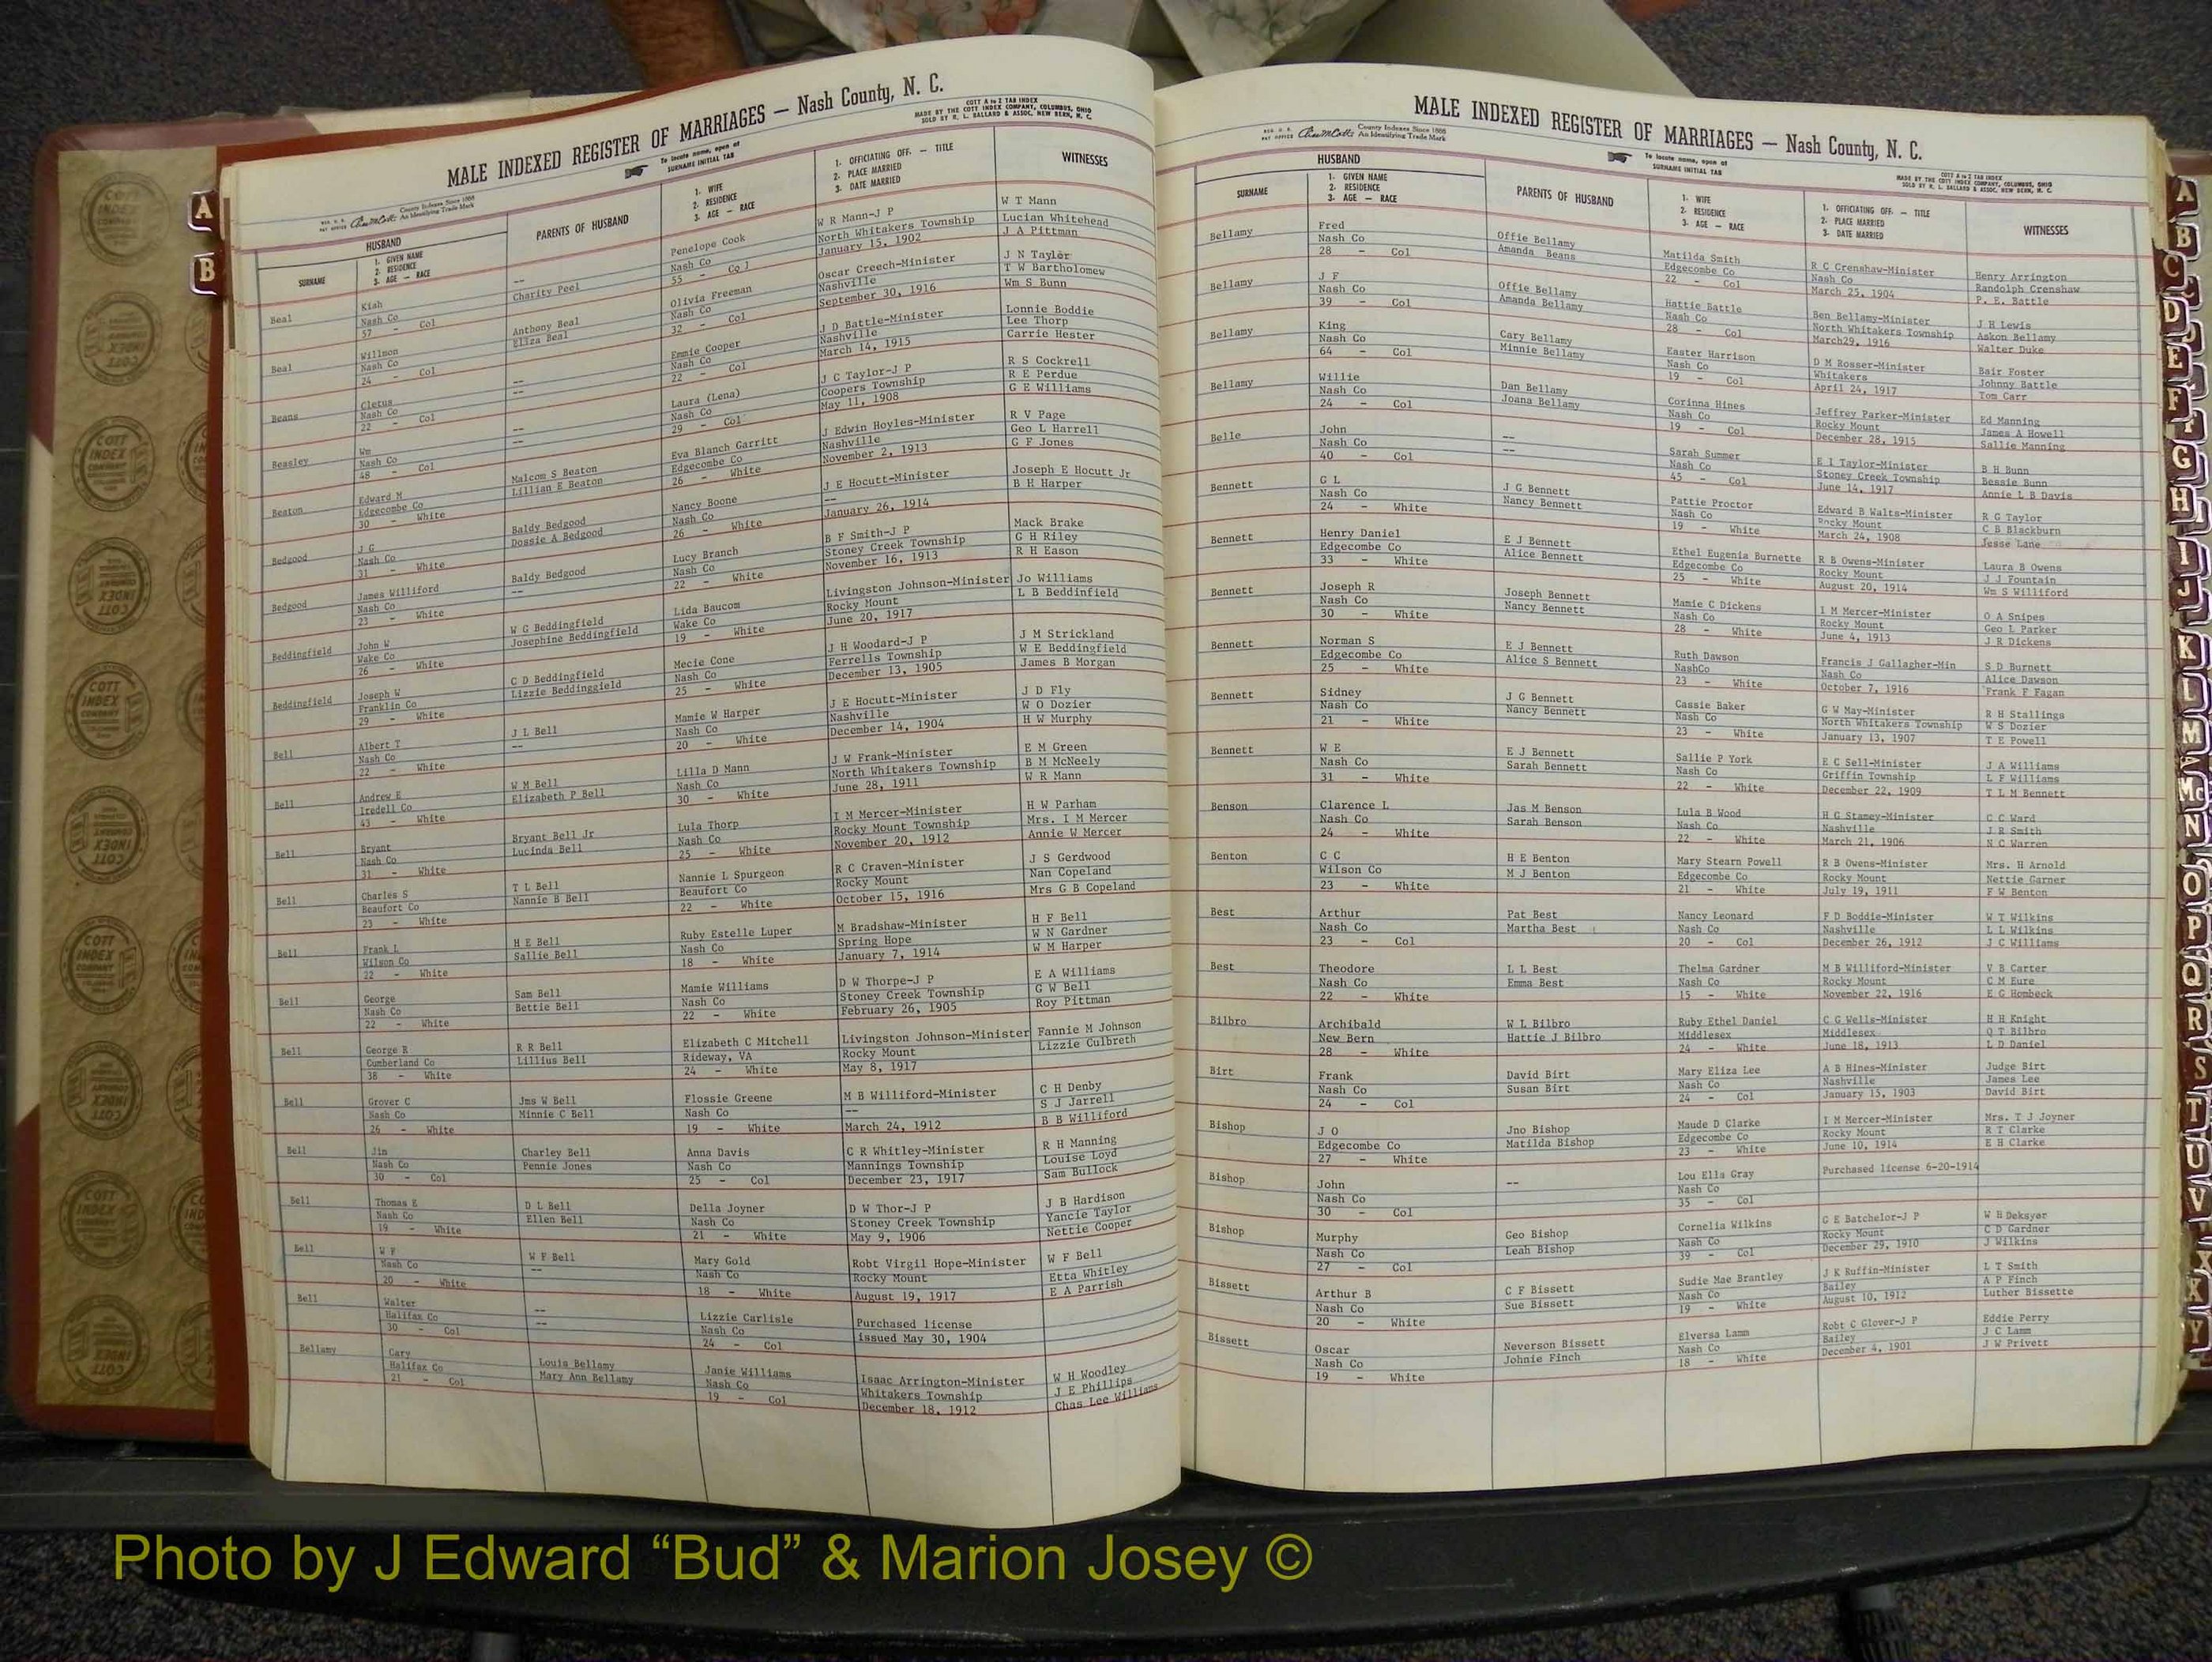 MALE INDEXED REGISTER OF MARRIAGES — Nash County, N. C.
COTT A to Z TAB INDEX
MADE BY THE COTT INDEX COMPANY, COLUMBUS, OHIO
SOLD BY R. L. BALLARD & ASSOC. NEW BERN, N. C.
County Indexes Since 1888
An Identifying Trade Mark
To locate name, open at
SURNAME INITIAL TAB
HUSBAND
SURNAME
1. GIVEN NAME
2. RESIDENCE
3. AGE — RACE
PARENTS OF HUSBAND
1. WIFE
2. RESIDENCE
3. AGE — RACE
1. OFFICIATING OFF. — TITLE
2. PLACE MARRIED
3. DATE MARRIED
WITNESSES
Beal Kiah -- Penelope Cook W R Mann-J P W T Mann
Nash Co Charity Peel Nash Co North Whitakers Township Lucian Whitehead
57 - Col 55 - Co l January 15, 1902 J A Pittman
Beal Willson Anthony Beal Olivia Freeman Oscar Creech-Minister J N Taylor
Nash Co Eliza Beal Nash Co Nashville T W Bartholomew
24 - Col 32 - Col September 30, 1916 Wm S Bunn
Beans Cletus -- Emmie Cooper J D Battle-Minister Lonnie Boddie
Nash Co -- Nash Co Nashville Lee Thorp
22 - Col 22 - Col March 14, 1915 Carrie Hester
Beasley Wm -- Laura (Lena) J G Taylor-J P R S Cockrell
Nash Co -- Nash Co Coopers Township R E Perdue
48 - Col 29 - Col May 11, 1908 G E Williams
Beaton Edward M Malcom S Beaton Eva Blanch Garritt J Edwin Hoyles-Minister R V Page
Edgecombe Co Lillian E Beaton Edgecombe Co Nashville Geo L Harrell
30 - White 26 - White November 2, 1913 G F Jones
Bedgood J G Baldy Bedgood Nancy Boone J E Hocutt-Minister Joseph E Hocutt Jr
Nash Co Dossie A Bedgood Nash Co -- B H Harper
31 - White 26 - White January 26, 1914
Bedgood James Williford Baldy Bedgood Lucy Branch B F Smith-J P Mack Brake
Nash Co -- Nash Co Stoney Creek Township G H Riley
23 - White 22 - White November 16, 1913 R H Eason
Beddingfield John W W G Beddingfield Lida Baucom Livingston Johnson-Minister Jo Williams
Wake Co Josephine Beddingfield Wake Co Rocky Mount L B Beddinfield
26 - White 19 - White June 20, 1917
Beddingfield Joseph W C D Beddingfield Mecie Cone J H Woodard-J P J M Strickland
Franklin Co Lizzie Beddinggield Nash Co Ferrells Township W E Beddingfield
29 - White 25 - White December 13, 1905 James B Morgan
Bell Albert T J L Bell Mamie W Harper J E Hocutt-Minister J D Fly
Nash Co -- Nash Co Nashville W O Dozier
22 - White 20 - White December 14, 1904 H W Murphy
Bell Andrew E W M Bell Lilla D Mann J W Frank-Minister E M Green
Iredell Co Elizabeth P Bell Nash Co North Whitakers Township B M McNeely
43 - White 30 - White June 28, 1911 W R Mann
Bell Bryant Bryant Bell Jr Lula Thorp I M Mercer-Minister H W Parham
Nash Co Lucinda Bell Nash Co Rocky Mount Township Mrs. I M Mercer
31 - White 25 - White November 20, 1912 Annie W Mercer
Bell Charles S T L Bell Nannie L Spurgeon R C Craven-Minister J S Gerdwood
Beaufort Co Nannie B Bell Beaufort Co Rocky Mount Nan Copeland
23 - White 22 - White October 15, 1916 Mrs G B Copeland
Bell Frank L H E Bell Ruby Estelle Luper M Bradshaw-Minister H F Bell
Wilson Co Sallie Bell Nash Co Spring Hope W N Gardner
22 - White 18 - White January 7, 1914 W M Harper
Bell George Sam Bell Mamie Williams D W Thorpe-J P E A Williams
Nash Co Bettie Bell Nash Co Stoney Creek Township G W Bell
22 - White 22 - White February 26, 1905 Roy Pittman
Bell George R R R Bell Elizabeth C Mitchell Livingston Johnson-Minister Fannie M Johnson
Cumberland Co Lillius Bell Rideway, VA Rocky Mount Lizzie Culbreth
38 - White 24 - White May 8, 1917
Bell Grover C Jms W Bell Flossie Greene M B Williford-Minister C H Denby
Nash Co Minnie C Bell Nash Co -- S J Jarrell
26 - White 19 - White March 24, 1912 B B Williford
Bell Jim Charley Bell Anna Davis C R Whitley-Minister R H Manning
Nash Co Pennie Jones Nash Co Mannings Township Louise Loyd
30 - Col 25 - Col December 23, 1917 Sam Bullock
Bell Thomas E D L Bell Della Joyner D W Thor-J P J B Hardison
Nash Co Ellen Bell Nash Co Stoney Creek Township Yancie Taylor
19 - White 21 - White May 9, 1906 Nettie Cooper
Bell W F W F Bell Mary Gold Robt Virgil Hope-Minister W F Bell
Nash Co -- Nash Co Rocky Mount Etta Whitley
20 - White 18 - White August 19, 1917 E A Parrish
Bell Walter -- Lizzie Carlisle Purchased license
Halifax Co -- Nash Co issued May 30, 1904
30 - Col 24 - Col
Bellamy Cary Louis Bellamy Janie Williams Isaac Arrington-Minister W H Woodley
Halifax Co Mary Ann Bellamy Nash Co Whitakers Township J E Phillips
21 - Col 19 - Col December 18, 1912 Chas Lee Williams
MALE INDEXED REGISTER OF MARRIAGES — Nash County, N. C.
County Indexes Since 1888
An Identifying Trade Mark
To locate name, open at
SURNAME INITIAL TAB
COTT A to Z TAB INDEX
MADE BY THE COTT INDEX COMPANY, COLUMBUS, OHIO
SOLD BY R. L. BALLARD & ASSOC. NEW BERN, N. C.
HUSBAND
SURNAME
1. GIVEN NAME
2. RESIDENCE
3. AGE — RACE
PARENTS OF HUSBAND
1. WIFE
2. RESIDENCE
3. AGE — RACE
1. OFFICIATING OFF. — TITLE
2. PLACE MARRIED
3. DATE MARRIED
WITNESSES
Bellamy Fred Offie Bellamy Matilda Smith R C Crenshaw-Minister Henry Arrington
Nash Co Amanda Beans Edgecombe Co Nash Co Randolph Crenshaw
28 - Col 22 - Col March 25, 1904 P. E. Battle
Bellamy J F Offie Bellamy Hattie Battle Ben Bellamy-Minister J H Lewis
Nash Co Amanda Bellamy Nash Co North Whitakers Township Askon Bellamy
39 - Col 28 - Col March29, 1916 Walter Duke
Bellamy King Cary Bellamy Easter Harrison D M Rosser-Minister Bair Foster
Nash Co Minnie Bellamy Nash Co Whitakers Johnny Battle
64 - Col 19 - Col April 24, 1917 Tom Carr
Bellamy Willie Dan Bellamy Corinna Hines Jeffrey Parker-Minister Ed Manning
Nash Co Joana Bellamy Nash Co Rocky Mount James A Howell
24 - Col 19 - Col December 28, 1915 Sallie Manning
Belle John -- Sarah Summer E I Taylor-Minister B H Bunn
Nash Co -- Nash Co Stoney Creek Township Bessie Bunn
40 - Col 45 - Col June 14, 1917 Annie L B Davis
Bennett G L J G Bennett Pattie Proctor Edward B Walts-Minister R G Taylor
Nash Co Nancy Bennett Nash Co Rocky Mount C B Blackburn
24 - White 19 - White March 24, 1908 Jesse Lane
Bennett Henry Daniel E J Bennett Ethel Eugenia Burnette R B Owens-Minister Laura B Owens
Edgecombe Co Alice Bennett Edgecombe Co Rocky Mount J J Fountain
33 - White 25 - White August 20, 1914 Wm S Williford
Bennett Joseph R Joseph Bennett Mamie C Dickens I M Mercer-Minister O A Snipes
Nash Co Nancy Bennett Nash Co Rocky Mount Geo L Parker
30 - White 28 - White June 4, 1913 J R Dickens
Bennett Norman S E J Bennett Ruth Dawson Francis J Gallagher-Min S D Burnett
Edgecombe Co Alice S Bennett NashCo Nash Co Alice Dawson
25 - White 23 - White October 7, 1916 Frank F Fagan
Bennett Sidney J G Bennett Cassie Baker G W May-Minister R H Stallings
Nash Co Nancy Bennett Nash Co North Whitakers Township W S Dozier
21 - White 23 - White January 13, 1907 T E Powell
Bennett W E E J Bennett Sallie P York E C Sell-Minister J A Williams
Nash Co Sarah Bennett Nash Co Griffin Township L F Williams
31 - White 22 - White December 22, 1909 T L M Bennett
Benson Clarence L Jas M Benson Lula B Wood H G Stamey-Minister C C Ward
Nash Co Sarah Benson Nash Co Nashville J R Smith
24 - White 22 - White March 21, 1906 N C Warren
Benton C C H E Benton Mary Stearn Powell R B Owens-Minister Mrs. H Arnold
Wilson Co M J Benton Edgecombe Co Rocky Mount Nettie Garner
23 - White 21 - White July 19, 1911 F W Benton
Best Arthur Pat Best Nancy Leonard F D Boddie-Minister W T Wilkins
Nash Co Martha Best Nash Co Nashville L L Wilkins
23 - Col 20 - Col December 26, 1912 J C Williams
Best Theodore L L Best Thelma Gardner M B Williford-Minister V B Carter
Nash Co Emma Best Nash Co Rocky Mount C M Eure
22 - White 15 - White November 22, 1916 E G Hombeck
Bilbro Archibald W L Bilbro Ruby Ethel Daniel C G Wells-Minister H H Knight
New Bern Hattie J Bilbro Middlesex Middlesex Q T Bilbro
28 - White 24 - White June 18, 1913 L D Daniel
Birt Frank David Birt Mary Eliza Lee A B Hines-Minister Judge Birt
Nash Co Susan Birt Nash Co Nashville James Lee
24 - Col 24 - Col January 15, 1903 David Birt
Bishop J O Jno Bishop Maude D Clarke I M Mercer-Minister Mrs. T J Joyner
Edgecombe Co Matilda Bishop Edgecombe Co Rocky Mount R T Clarke
27 - White 23 - White June 10, 1914 E H Clarke
Bishop John -- Lou Ella Gray Purchased license 6-20-1914
Nash Co Nash Co
30 - Col 35 - Col
Bishop Murphy Geo Bishop Cornelia Wilkins G E Batchelor-J P W H Deksyer
Nash Co Leah Bishop Nash Co Rocky Mount C D Gardner
27 - Col 39 - Col December 29, 1910 J Wilkins
Bissett Arthur B C F Bissett Sudie Mae Brantley J K Ruffin-Minister L T Smith
Nash Co Sue Bissett Nash Co Bailey A P Finch
20 - White 19 - White August 10, 1912 Luther Bissette
Bissett Oscar Neverson Bissett Elversa Lamm Robt C Glover-J P Eddie Perry
Nash Co Johnie Finch Nash Co Bailey J C Lamm
19 - White 18 - White December 4, 1901 J W Privett
A
B
A
B
C
D
E
F
G
H
I
J
K
L
M
Mc
N
O
P
Q
R
S
T
U
V
Y
COTT INDEX COMPANY
Photo by J Edward “Bud” & Marion Josey ©